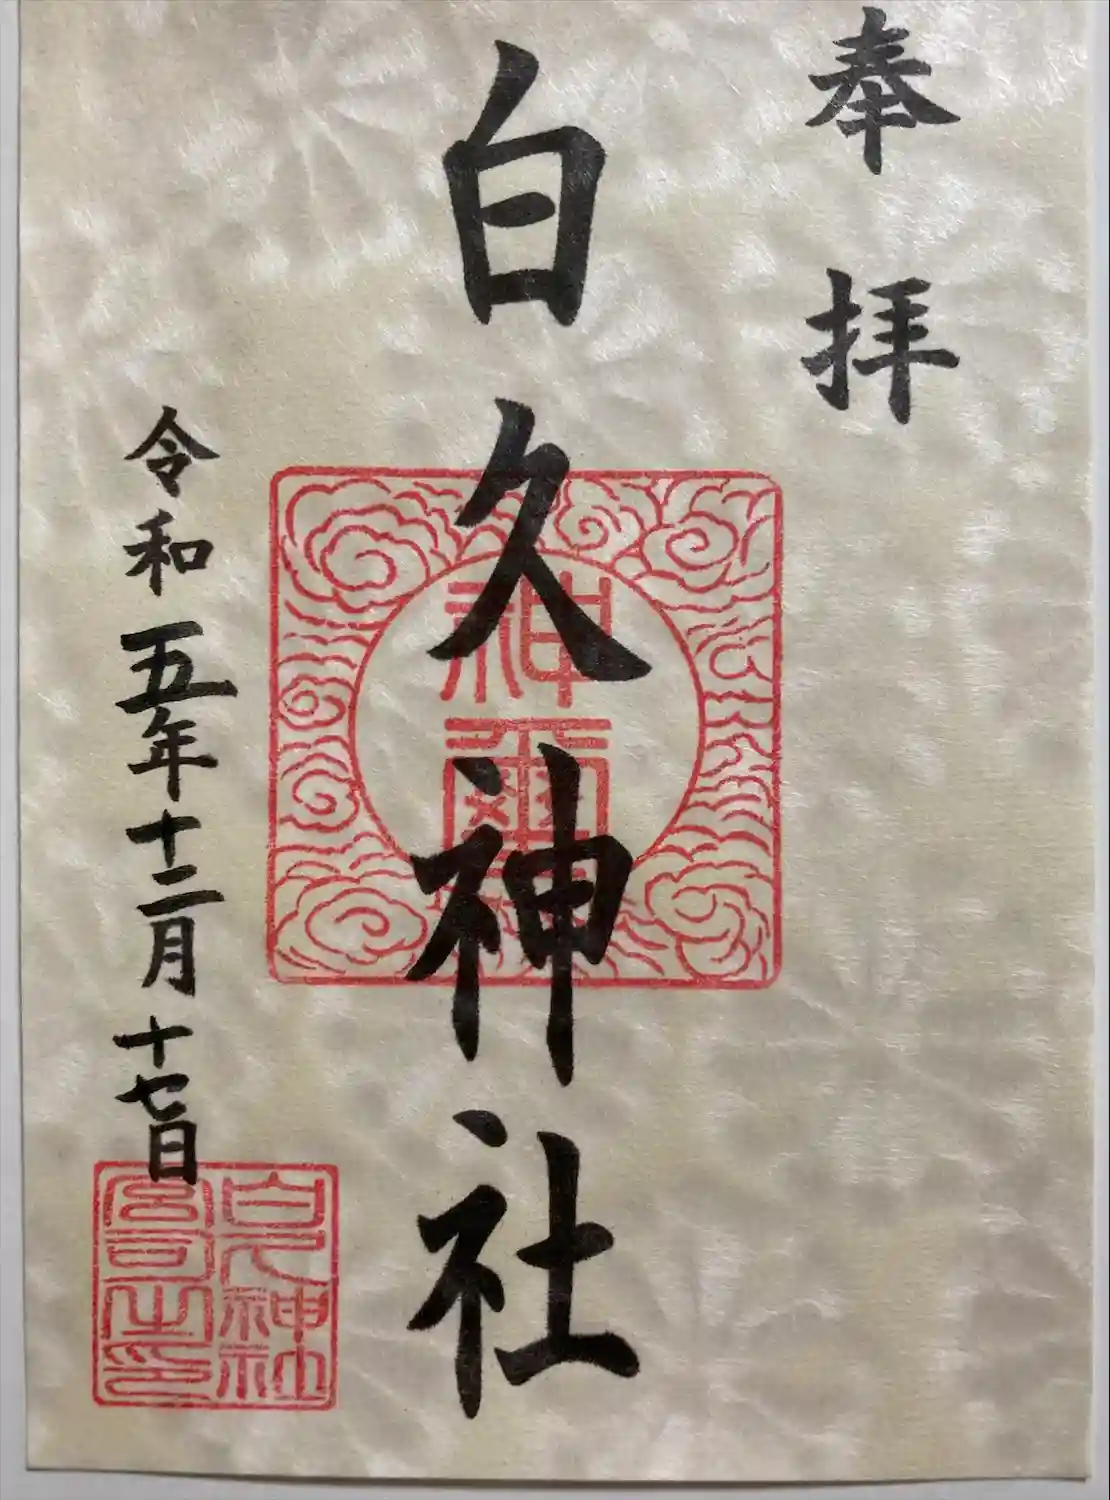 奉拝
白久神社
神璽
令和五年十二月十七日
白久神社
宮司之印